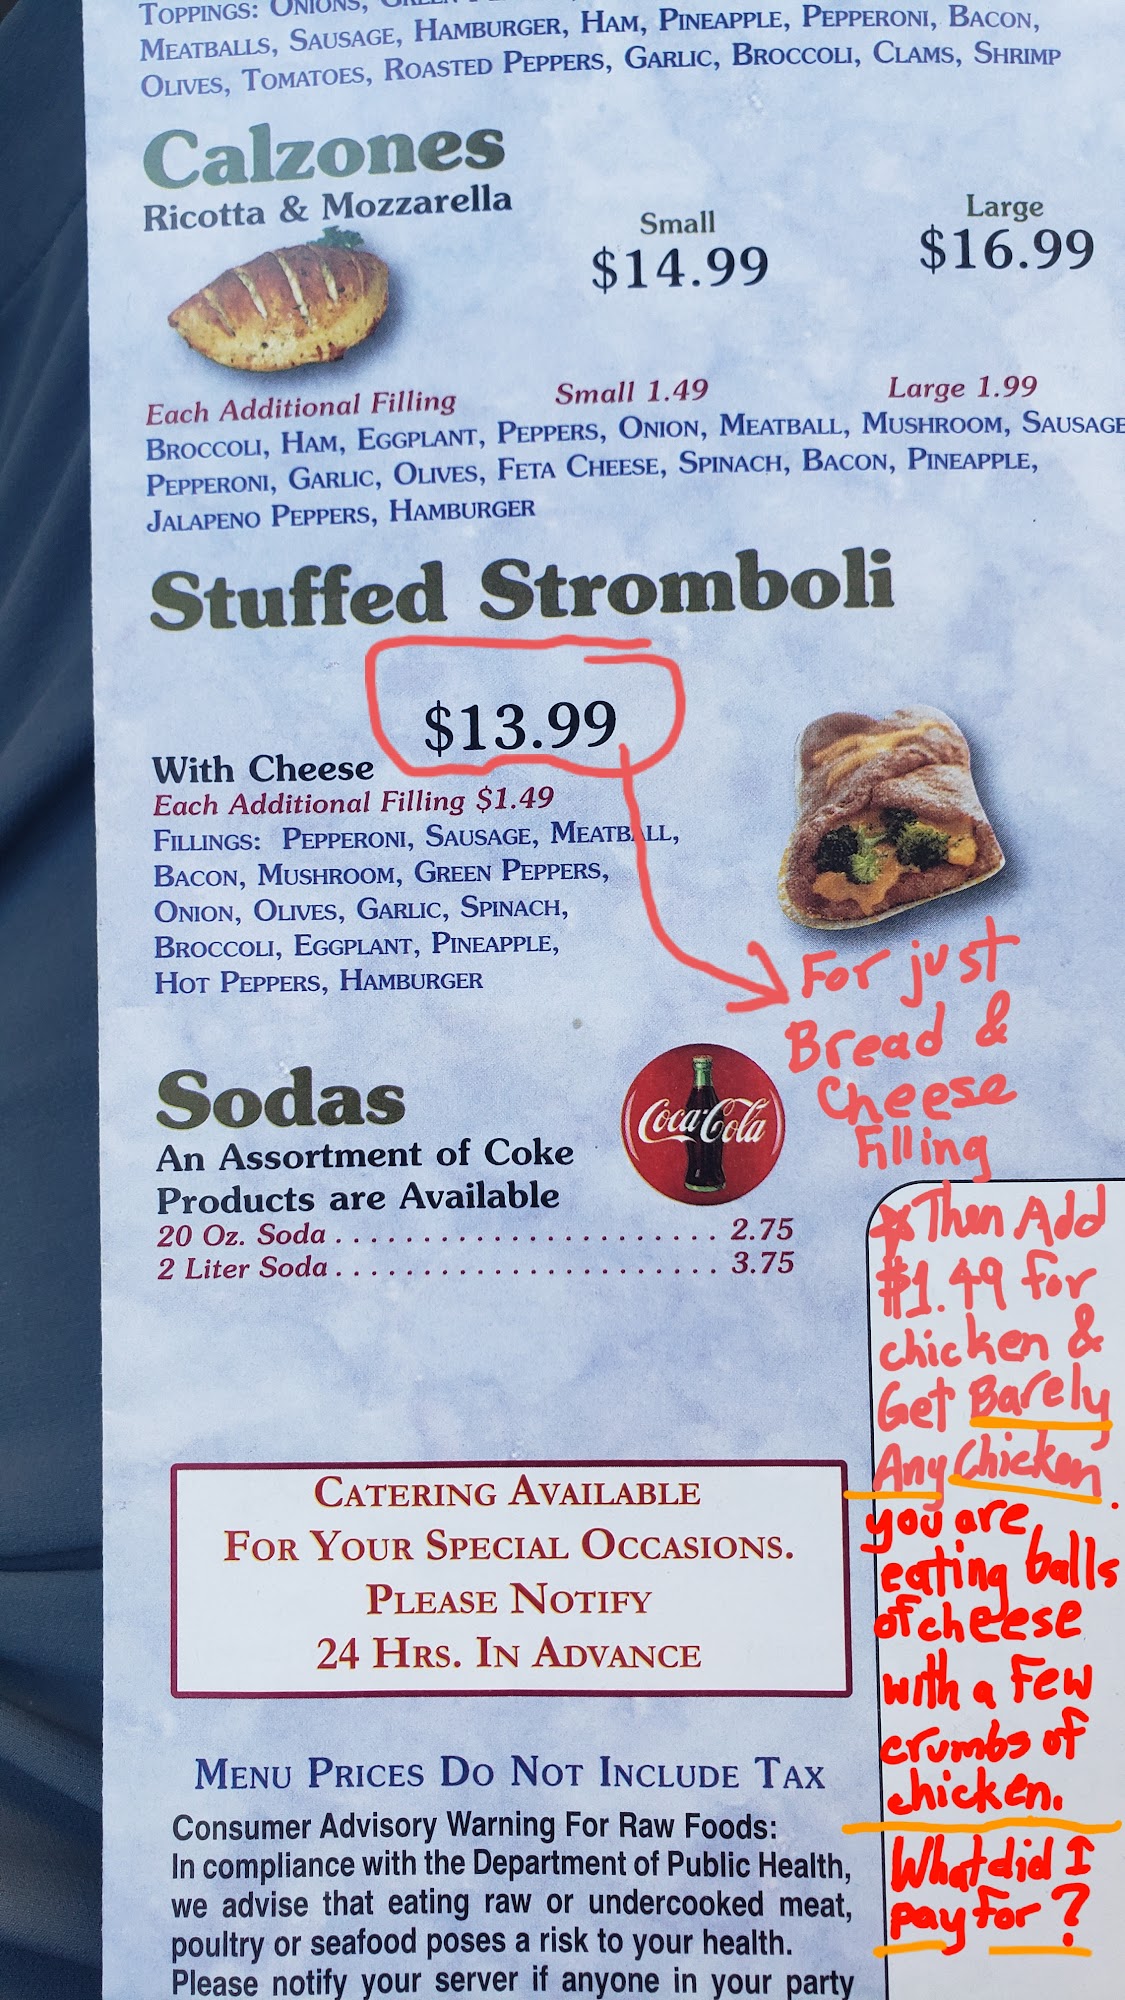 TOPPINGS: ONIONS,
MEATBALLS, SAUSAGE, HAMBURGER, HAM, PINEAPPLE, PEPPERONI, BACON,
OLIVES, TOMATOES, ROASTED PEPPERS, GARLIC, BROCCOLI, CLAMS, SHRIMP
Calzones
Ricotta & Mozzarella
Small Large
$14.99 $16.99
Each Additional Filling Small 1.49 Large 1.99
BROCCOLI, HAM, EGGPLANT, PEPPERS, ONION, MEATBALL, MUSHROOM, SAUSAGE
PEPPERONI, GARLIC, OLIVES, FETA CHEESE, SPINACH, BACON, PINEAPPLE,
JALAPENO PEPPERS, HAMBURGER
Stuffed Stromboli
$13.99
With Cheese
Each Additional Filling $1.49
FILLINGS: PEPPERONI, SAUSAGE, MEATBALL,
BACON, MUSHROOM, GREEN PEPPERS,
ONION, OLIVES, GARLIC, SPINACH,
BROCCOLI, EGGPLANT, PINEAPPLE,
HOT PEPPERS, HAMBURGER
For just
Bread &
Cheese
Filling
Then Add
$1.49 for
chicken &
Get Barely
Any Chicken.
you are
eating balls
of cheese
with a few
crumbs of
chicken.
What did I
pay for?
Sodas
An Assortment of Coke
Products are Available
20 Oz. Soda . . . . . . . . . . . . . . . . . . . . . . . 2.75
2 Liter Soda . . . . . . . . . . . . . . . . . . . . . . . 3.75
Coca-Cola
CATERING AVAILABLE
FOR YOUR SPECIAL OCCASIONS.
PLEASE NOTIFY
24 HRS. IN ADVANCE
MENU PRICES DO NOT INCLUDE TAX
Consumer Advisory Warning For Raw Foods:
In compliance with the Department of Public Health,
we advise that eating raw or undercooked meat,
poultry or seafood poses a risk to your health.
Please notify your server if anyone in your party